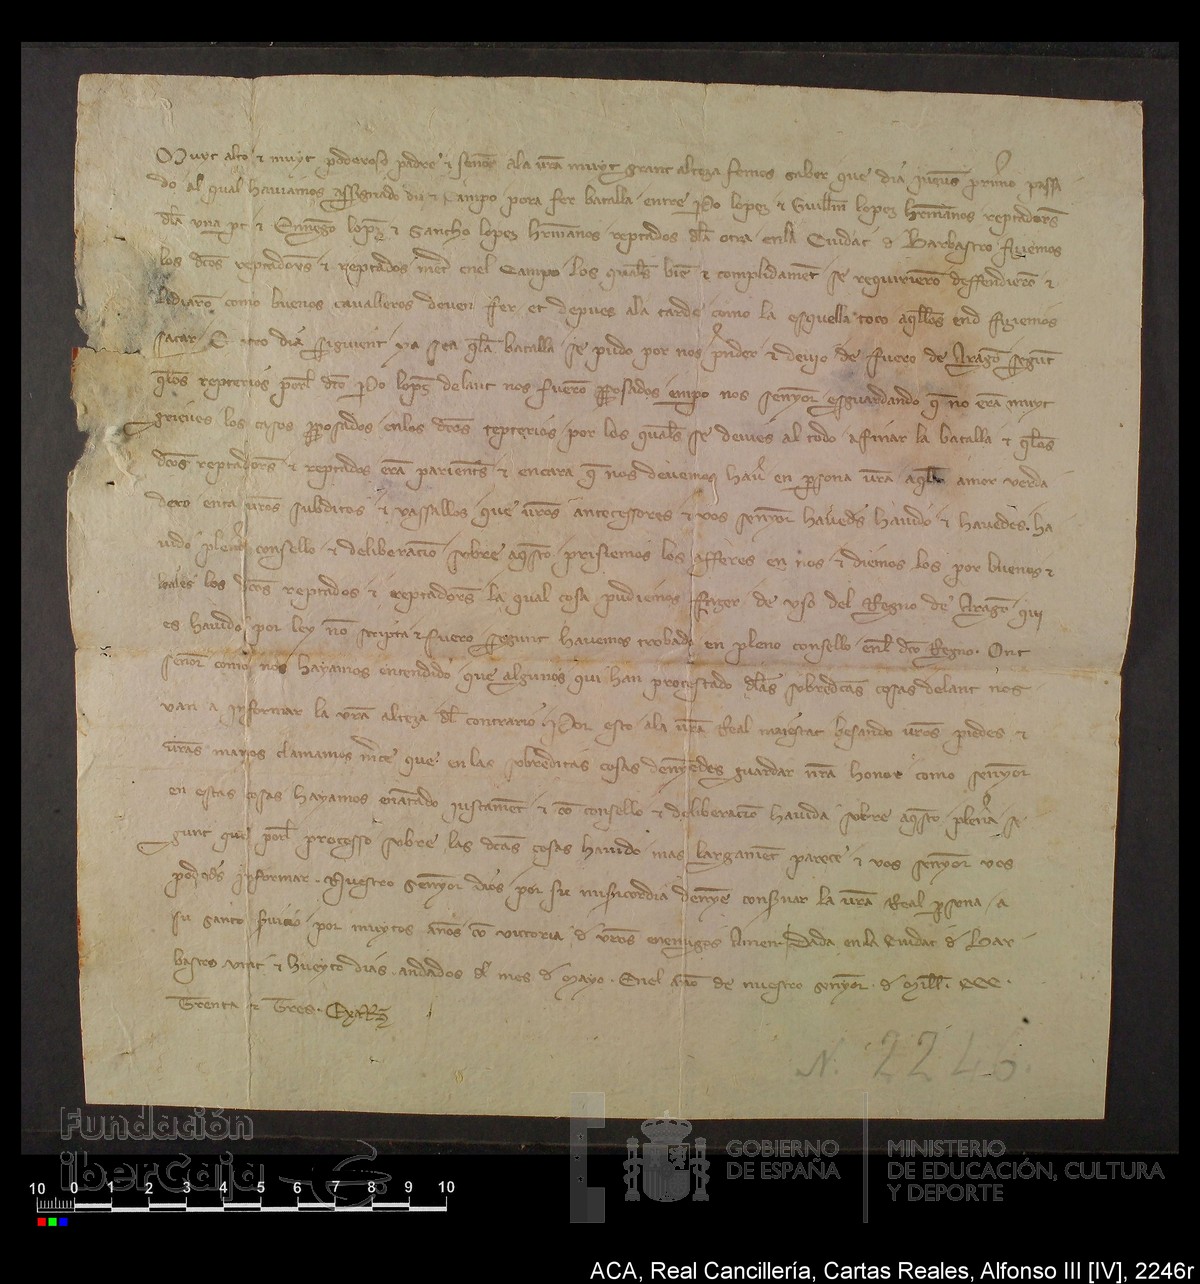 Muyt alto & muyt poderoso padre & senor ala vra muyt grant alteza femos saber que dia jueus primo passa
do al qual haviamos assignado dia & campo pora fer batalla entre Po lopez & Guillm lopez hrmanos reptadors
dla una pt & Ennego lopez & Sancho lopez hrmanos reptados dla otra enla Ciudat d Barbastro fiziemos
los dcos reptadors & reptados met enel Campo los quals bie & complidament se requiriero deffendiero &
lidiaro como buenos cavalleros deven fer et depues ala tarde como la esquella toco aqllos end fiziemos
sacar. E otro dia siguient ya sea qla batalla se pudo por nos pnder & devijo de fuero de Arago segunt
qlos repterios porl dco Po lopez delant nos fuero pposados empo nos senyor esguardando q no era muyt
grieues los casos pposados enlos dcos repterios por los quals se devies al todo afinar la batalla & qlos
dcos reptadors & reptados era parients & encara q nos devemos hav en psona vra aqlla amor verda
dero enta vros subditos & vassallos que vros antecessores & vos senyor haveds havido & havedes. ha
vido pleno consello & deliberacio sobre aqsto prisiemos los afferes en nos & diemos los por buenos &
leales los dcos reptados & reptadors la qual cosa pudiemos ffazer de uso del Regno de Arago qui
es havido por ley no scripta & fuero segunt havemos trobado en pleno consello enl dco Regno. Ont
senor como nos hayamos entendido que algunos qui han protestado dlas sobredcas cosas delant nos
van a informar la vra alteza dl contrario Por esto ala vra Real maiestat besando vros piedes &
vras manos clamamos mce que en las sobreditas cosas denyedes guardar nra honor como senyor
en estas cosas hayamos enantado justament & co consello & deliberacio havida sobre aqsto plena se
gunt que porl processo sobre las dcas cosas havido mas largament parece & vos senyor vos
podreds informar. Nuestro senyor dios por su misicordia denye consvar la vra Real psona a
su santo svicio por muytos anos co victoria d vros enemigos Amen. Dada enla Ciudat d Bar
bastro vint & hueyto dias andados dl mes d mayo. Enel anio de nuestro senyor d Mill. CCC.
Trenta & Tres.
N. 2246.
Fundación
iberCaja
GOBIERNO
DE ESPAÑA
MINISTERIO
DE EDUCACIÓN, CULTURA
Y DEPORTE
10 0 1 2 3 4 5 6 7 8 9 10
ACA, Real Cancillería, Cartas Reales, Alfonso III [IV], 2246r